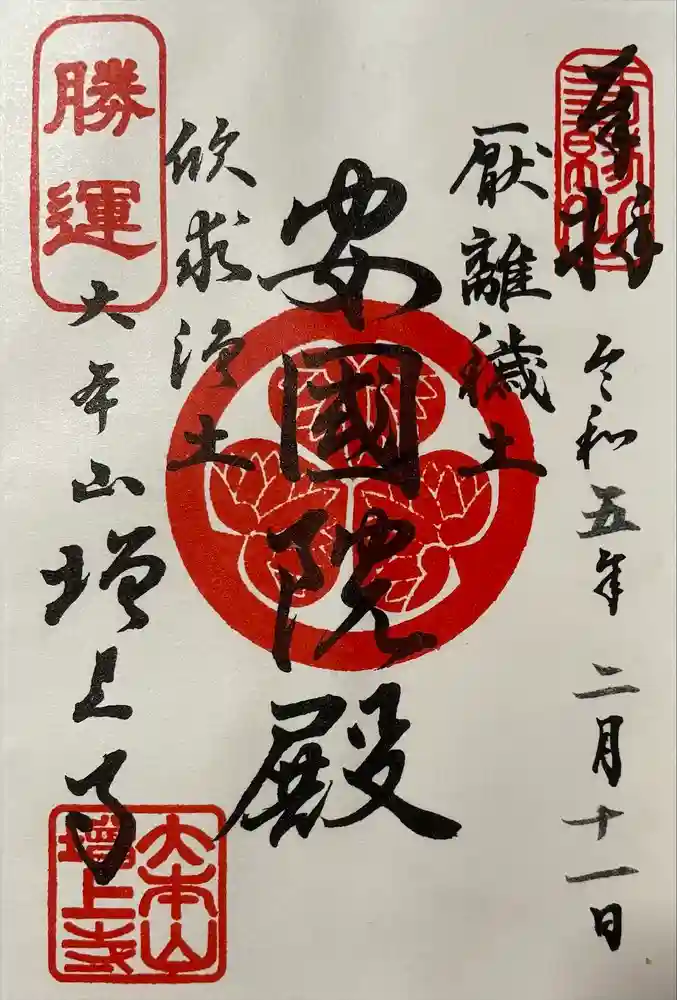 奉拝
令和五年二月十一日
厭離穢土
安國院殿
欣求浄土
勝運
大本山増上寺
大本山
增上寺